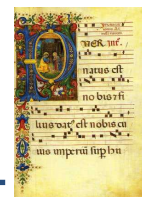 UER
natus est
no bis & fi
lius dat' est nobis cu
ius imperiū sup hu